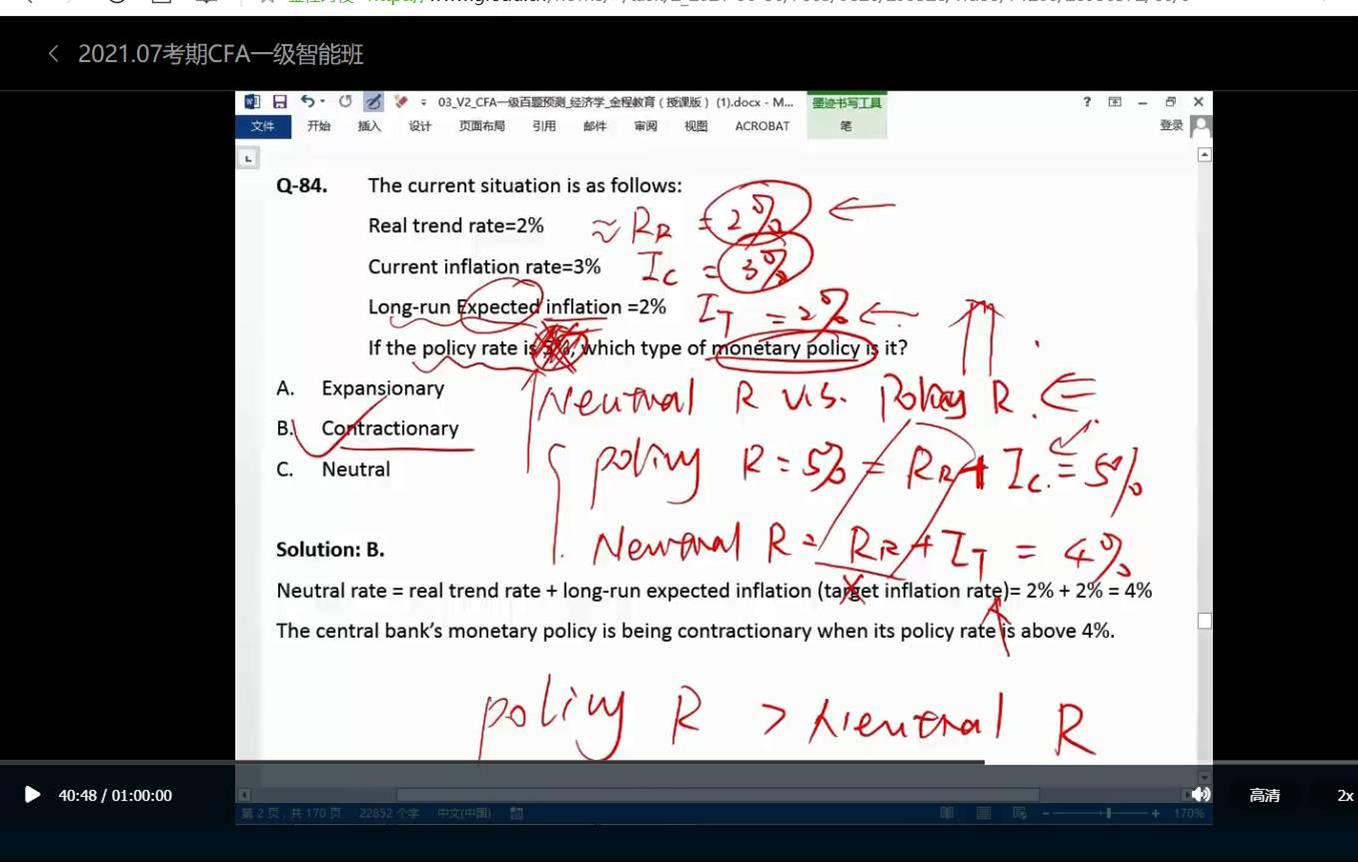 2021.07考期CFA一级智能班
03_V2_CFA一级百题预测_经济学_金程教育（授课版）(1).docx - M...
墨迹书写工具
文件 开始 插入 设计 页面布局 引用 邮件 审阅 视图 ACROBAT 笔 登录
Q-84. The current situation is as follows:
Real trend rate=2% ≈ RR = 2%
Current inflation rate=3% IC = 3%
Long-run Expected inflation =2% IT = 2%
If the policy rate is which type of monetary policy is it?
A. Expansionary
Neutral R v.s. Policy R.
B. Contractionary
policy R = 5% = RR + IC = 5%
C. Neutral
Neutral R = RR + IT = 4%
Solution: B.
Neutral rate = real trend rate + long-run expected inflation (target inflation rate)= 2% + 2% = 4%
The central bank's monetary policy is being contractionary when its policy rate is above 4%.
policy R > Neutral R
40:48 / 01:00:00 高清 2x
第 2 页，共 170 页 22852 个字 中文(中国) 170%